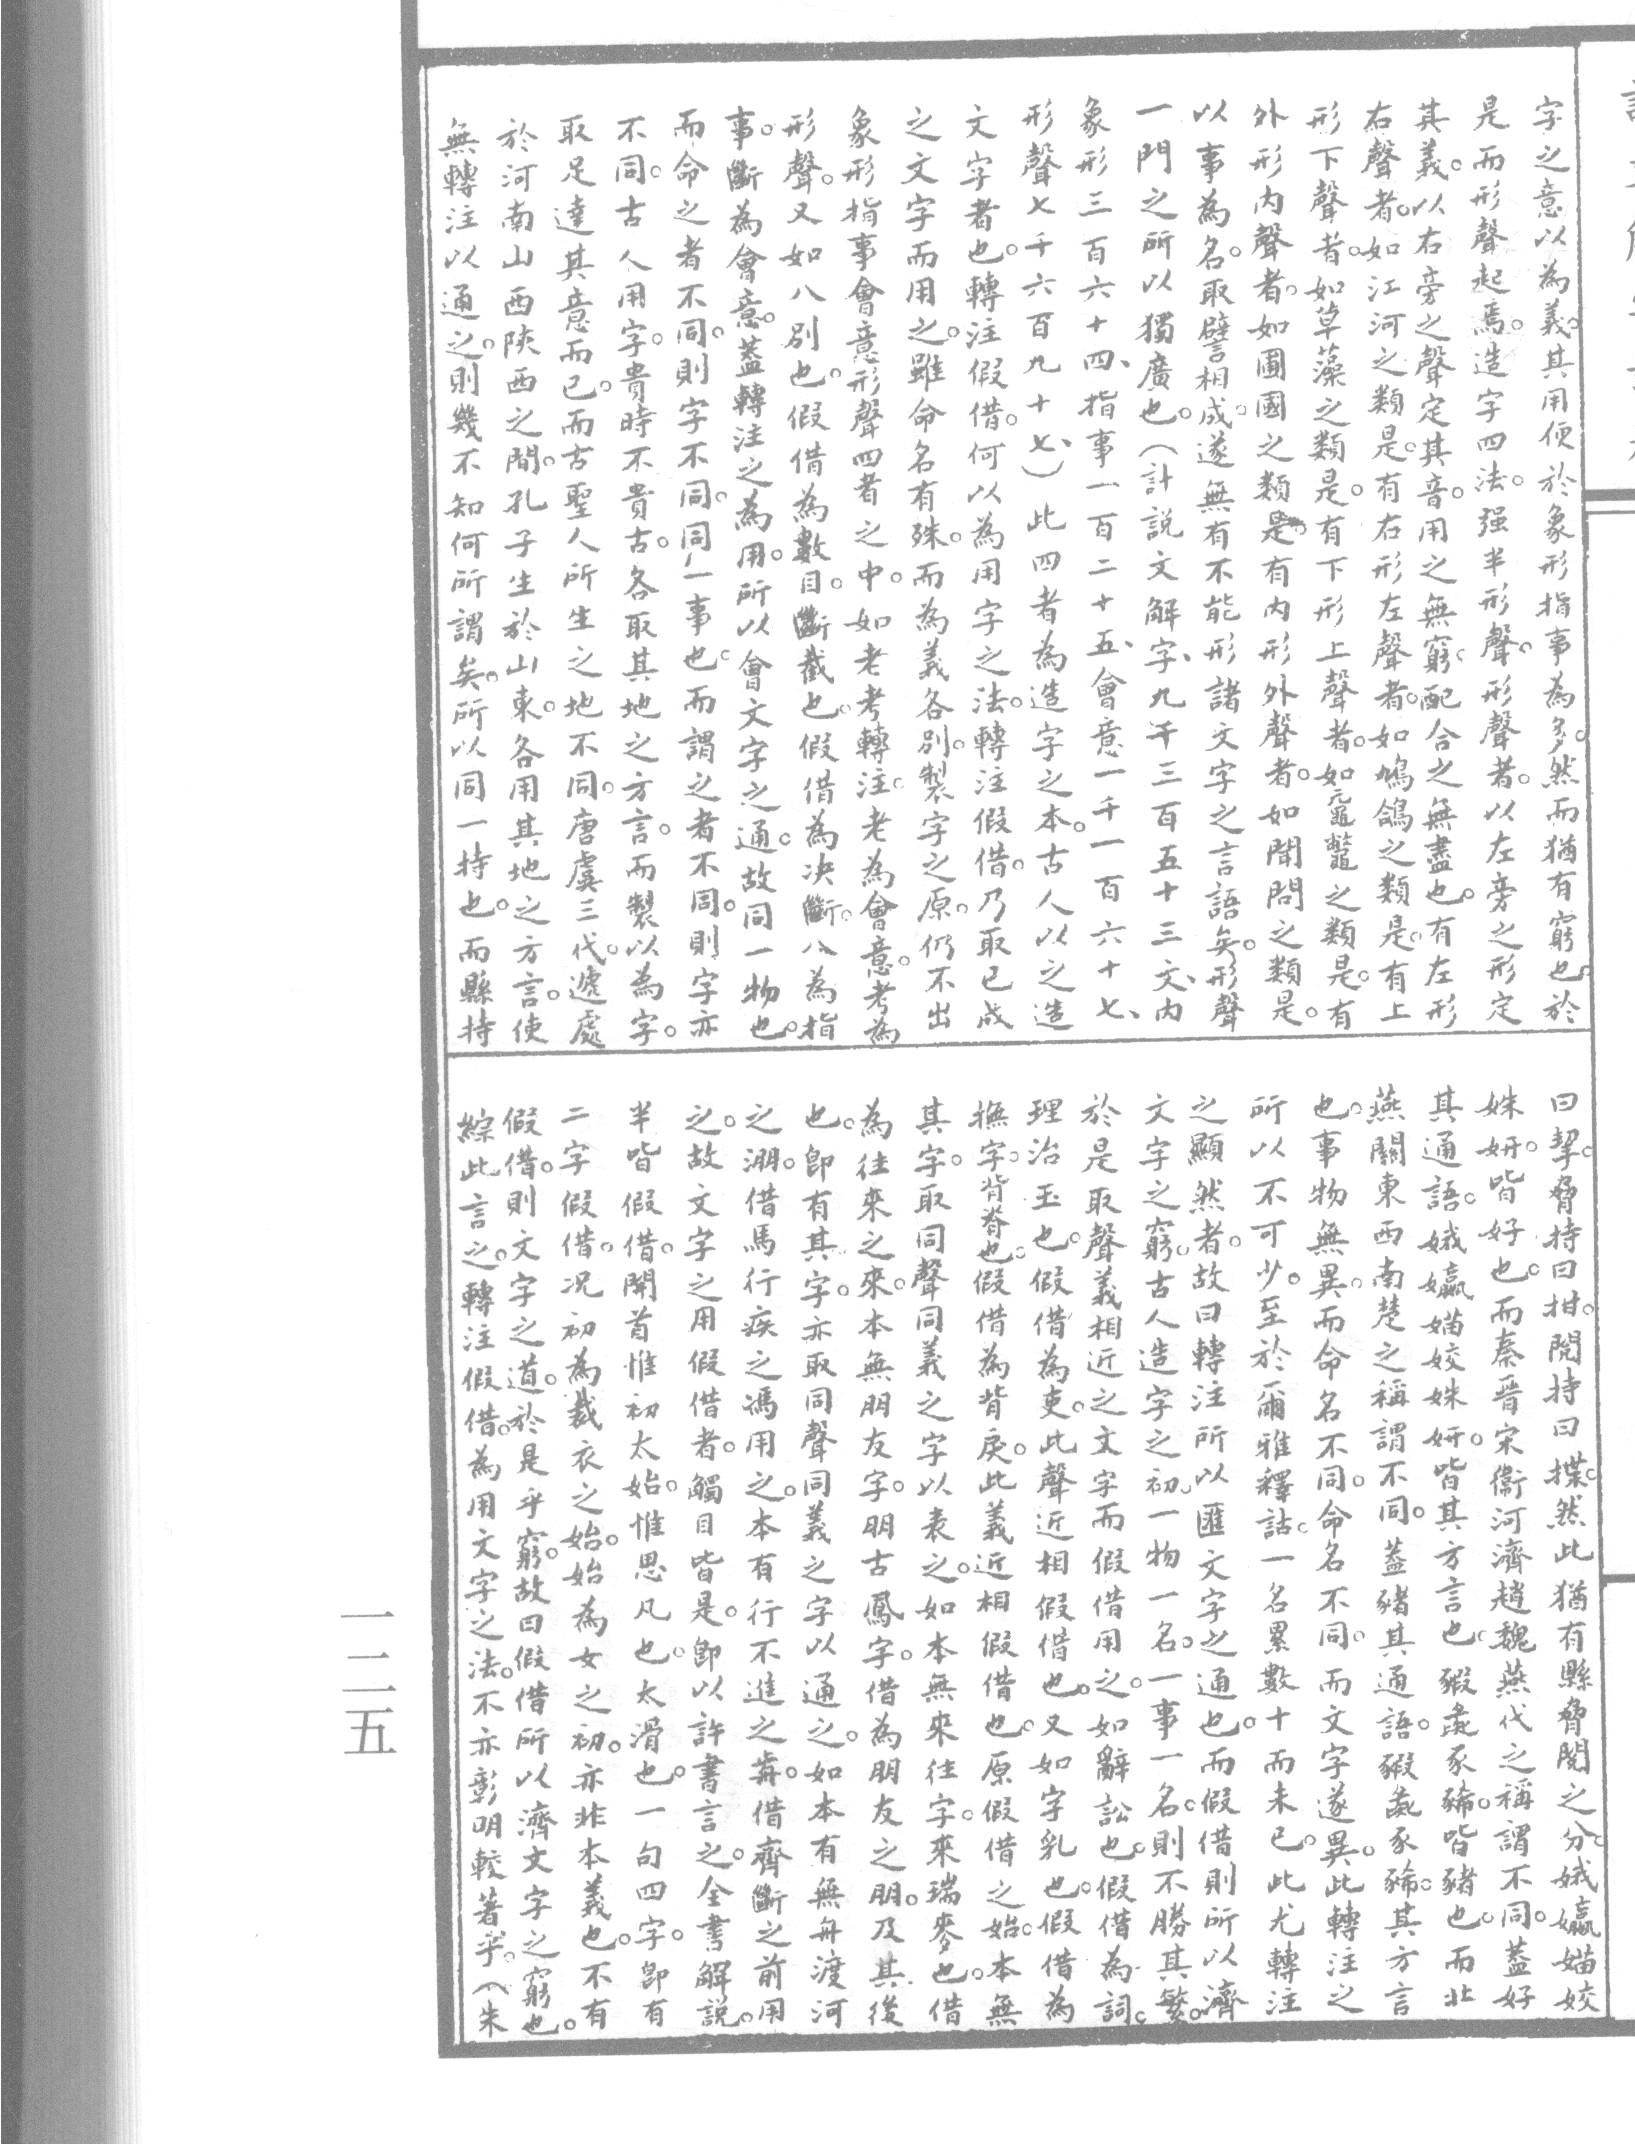 字之意以為義。其用便於象形指事為多。然而猶有窮也。於
是而形聲起焉。造字四法。强半形聲。形聲者。以左旁之形定
其義。以右旁之聲定其音。用之無窮。配合之無盡也。有左形
右聲者。如江河之類是。有右形左聲者。如鳩鴿之類是。有上
形下聲者。如草藻之類是。有下形上聲者。如黿鼈之類是。有
外形內聲者。如圃國之類是。有內形外聲者。如聞問之類是。
以事為名。取譬相成。遂無有不能形諸文字之言語矣。形聲
一門之所以獨廣也。（計説文解字、九千三百五十三文、內
象形三百六十四、指事一百二十五、會意一千一百六十七、
形聲七千六百九十七、）此四者為造字之本。古人以之造
文字者也。轉注假借。何以為用字之法。轉注假借。乃取已成
之文字而用之。雖命名有殊。而為義各別。製字之原。仍不出
象形指事會意形聲四者之中。如老考轉注。老為會意。考為
形聲。又如八別也。假借為數目。斷截也。假借為決斷。八為指
事。斷為會意。蓋轉注之為用。所以會文字之通。故同一物也。
而命之者不同。則字不同。同一事也。而謂之者不同。則字亦
不同。古人用字。貴時不貴古。各取其地之方言。而製以為字。
取足達其意而已。而古聖人所生之地不同。唐虞三代。遞處
於河南山西陝西之間。孔子生於山東。各用其地之方言。使
無轉注以通之。則幾不知何所謂矣。所以同一持也。而縣持
曰挈。脅持曰拑。閱持曰揲。然此猶有縣脅閱之分。娥㜲媌姣
姝妍。皆好也。而秦晉宋衞河濟趙魏燕代之稱謂不同。蓋好
其通語。娥㜲媌姣姝妍。皆其方言也。豭彘豕豨。皆豬也。而北
燕關東西南楚之稱謂不同。蓋豬其通語。豭彘豕豨。其方言
也。事物無異。而命名不同。命名不同。而文字遂異。此轉注之
所以不可少。至於爾雅釋詁。一名累數十而未已。此尤轉注
之顯然者。故曰轉注所以匯文字之通也。而假借則所以濟
文字之窮。古人造字之初。一物一名。一事一名。則不勝其繁。
於是取聲義相近之文字而假借用之。如辭訟也。假借為詞。
理治玉也。假借為吏。此聲近相假借也。又如字乳也。假借為
撫字。背脊也。假借為背戾。此義近相假借也。原假借之始。本無
其字。取同聲同義之字以表之。如本無來往字。來瑞麥也。借
為往來之來。本無朋友字。朋古鳳字。借為朋友之朋。及其後
也。卽有其字。亦取同聲同義之字以通之。如本有無舟渡河
之淜。借馬行疾之馮用之。本有行不進之歬。借齊斷之前用
之。故文字之用假借者。觸目皆是。卽以許書言之。全書解説。
半皆假借。開首惟初太始。惟思凡也。太滑也。一句四字。卽有
二字假借。況初為裁衣之始。始為女之初。亦非本義也。不有
假借。則文字之道。於是乎窮。故曰假借所以濟文字之窮也。
綜此言之。轉注假借。為用文字之法。不亦彰明較著乎。（朱
一二五